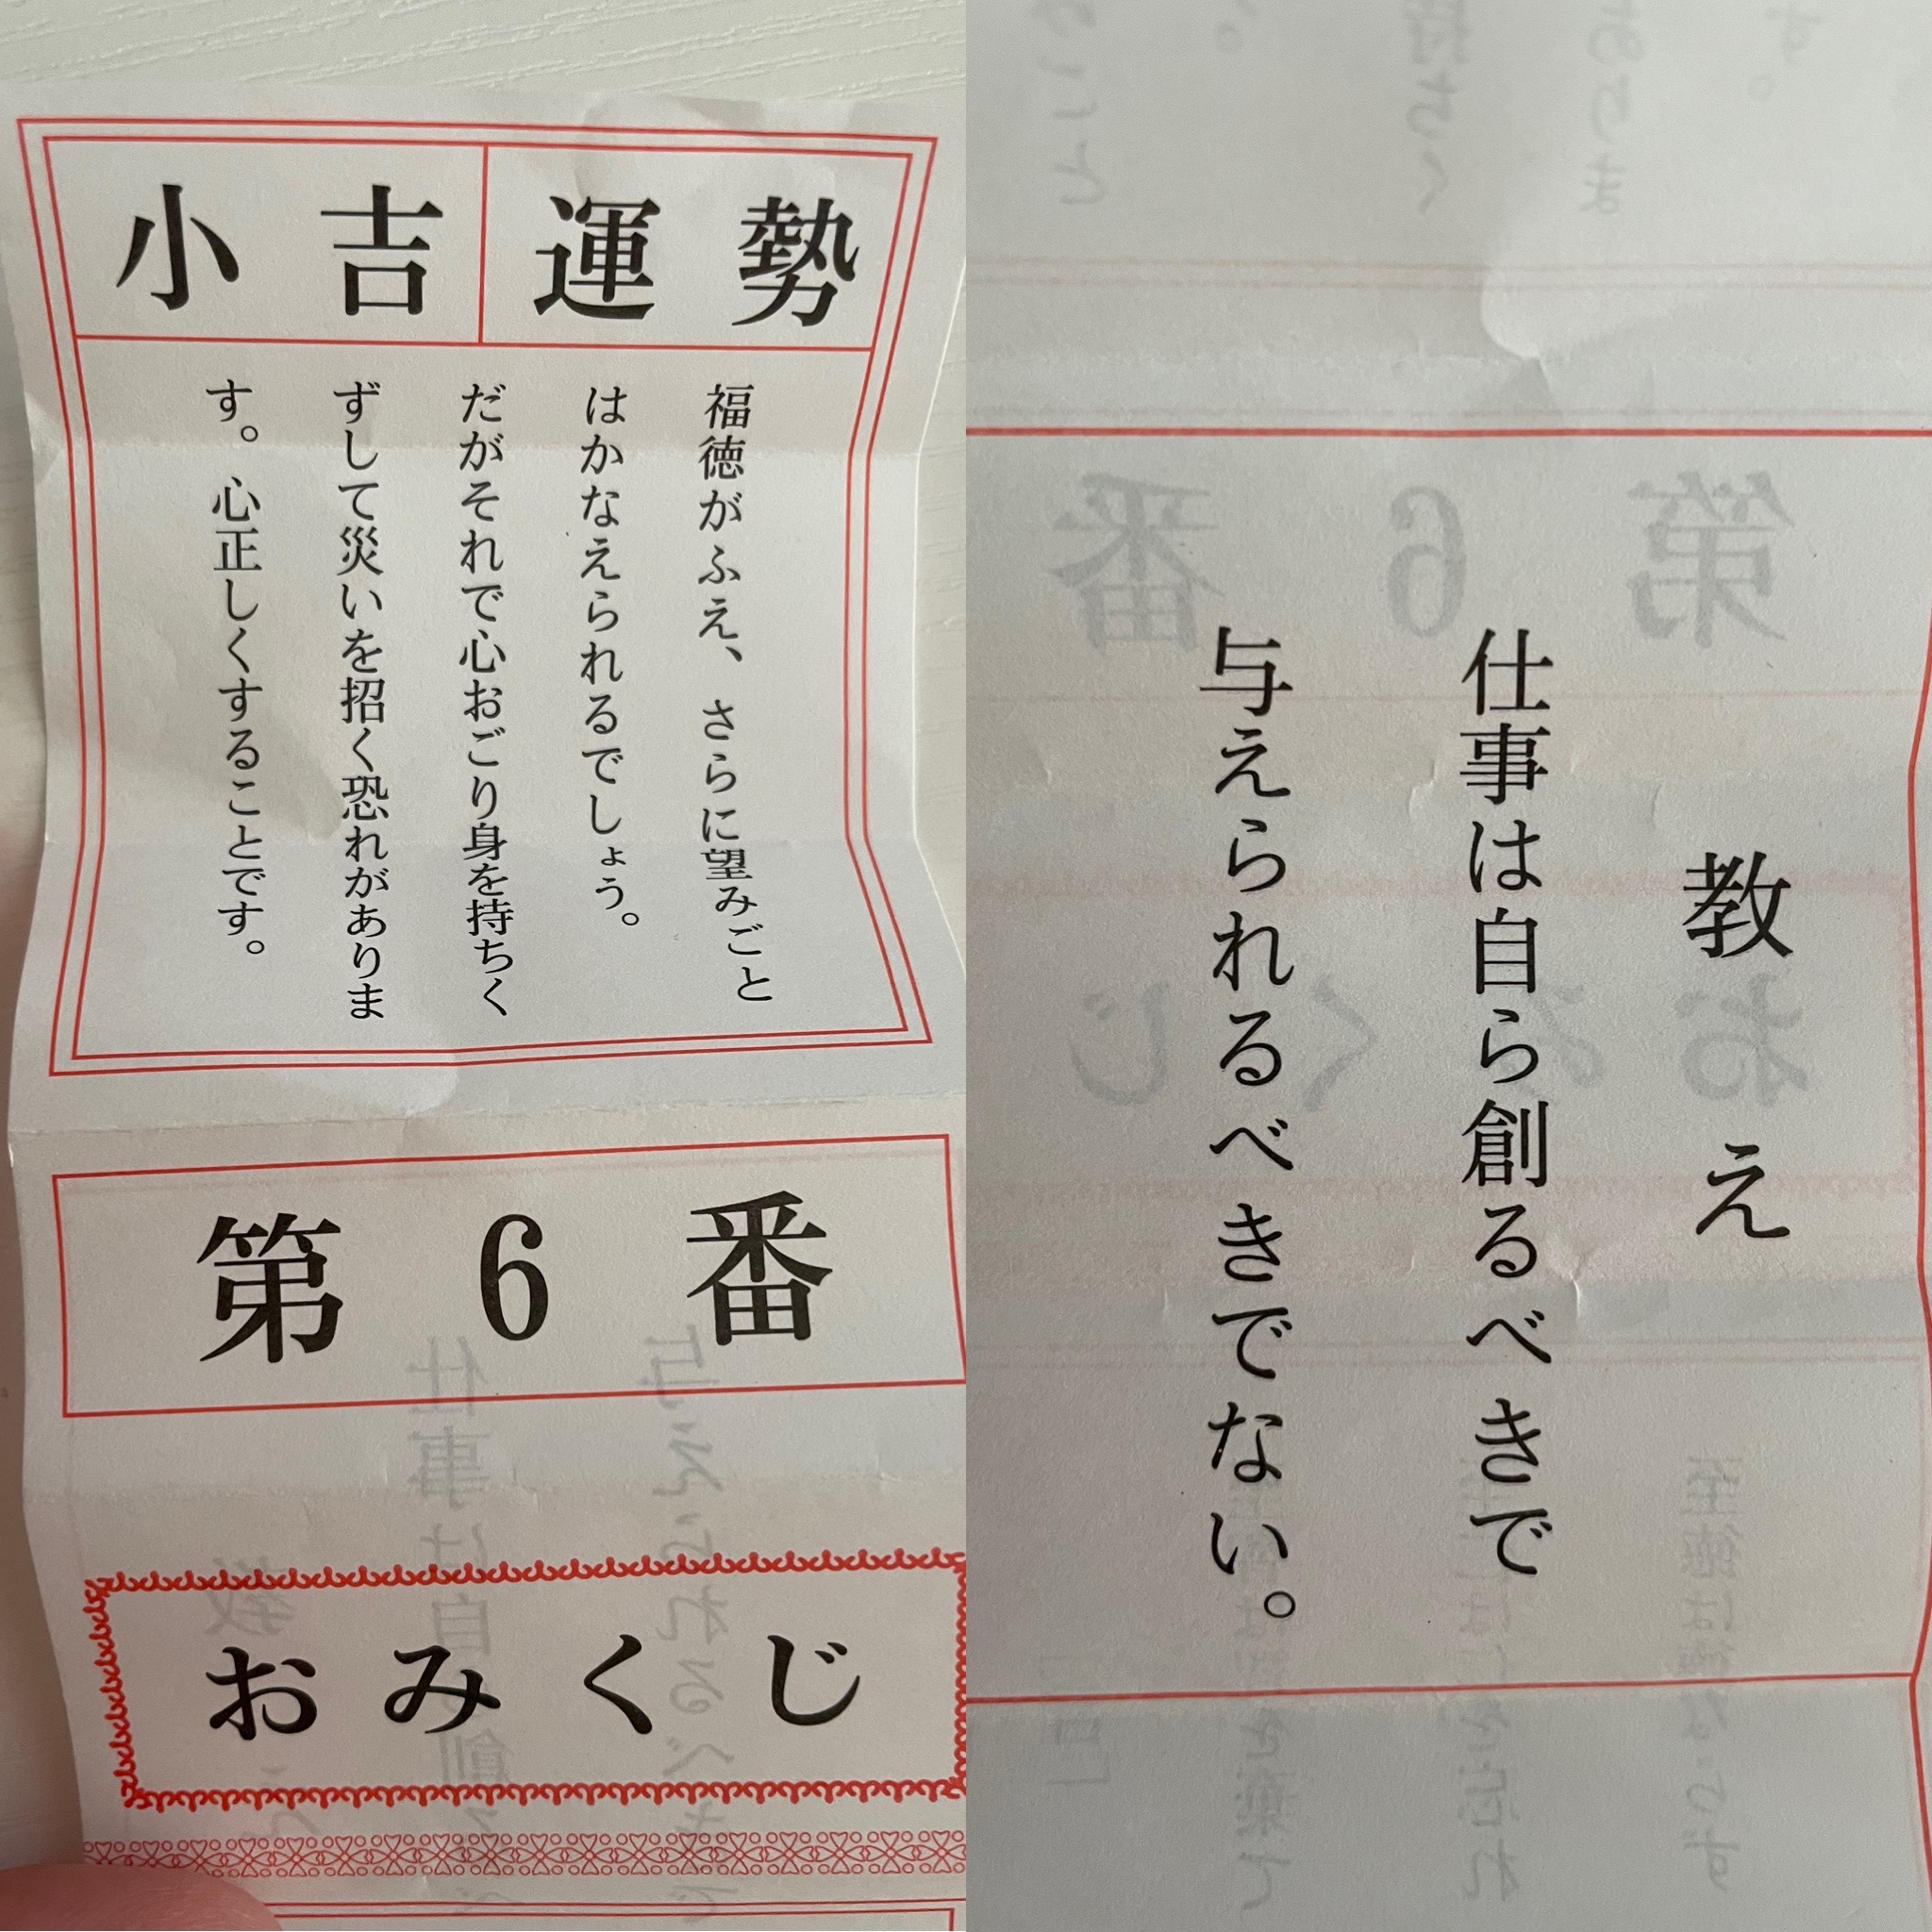 小吉 運勢
福徳がふえ、さらに望みごと
はかなえられるでしょう。
だがそれで心おごり身を持ちく
ずして災いを招く恐れがありま
す。心正しくすることです。
第6番
おみくじ
教え
仕事は自ら創るべきで
与えられるべきでない。